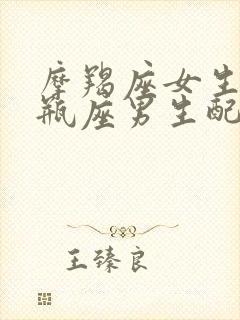 摩羯座女生
瓶座男生配
王臻良